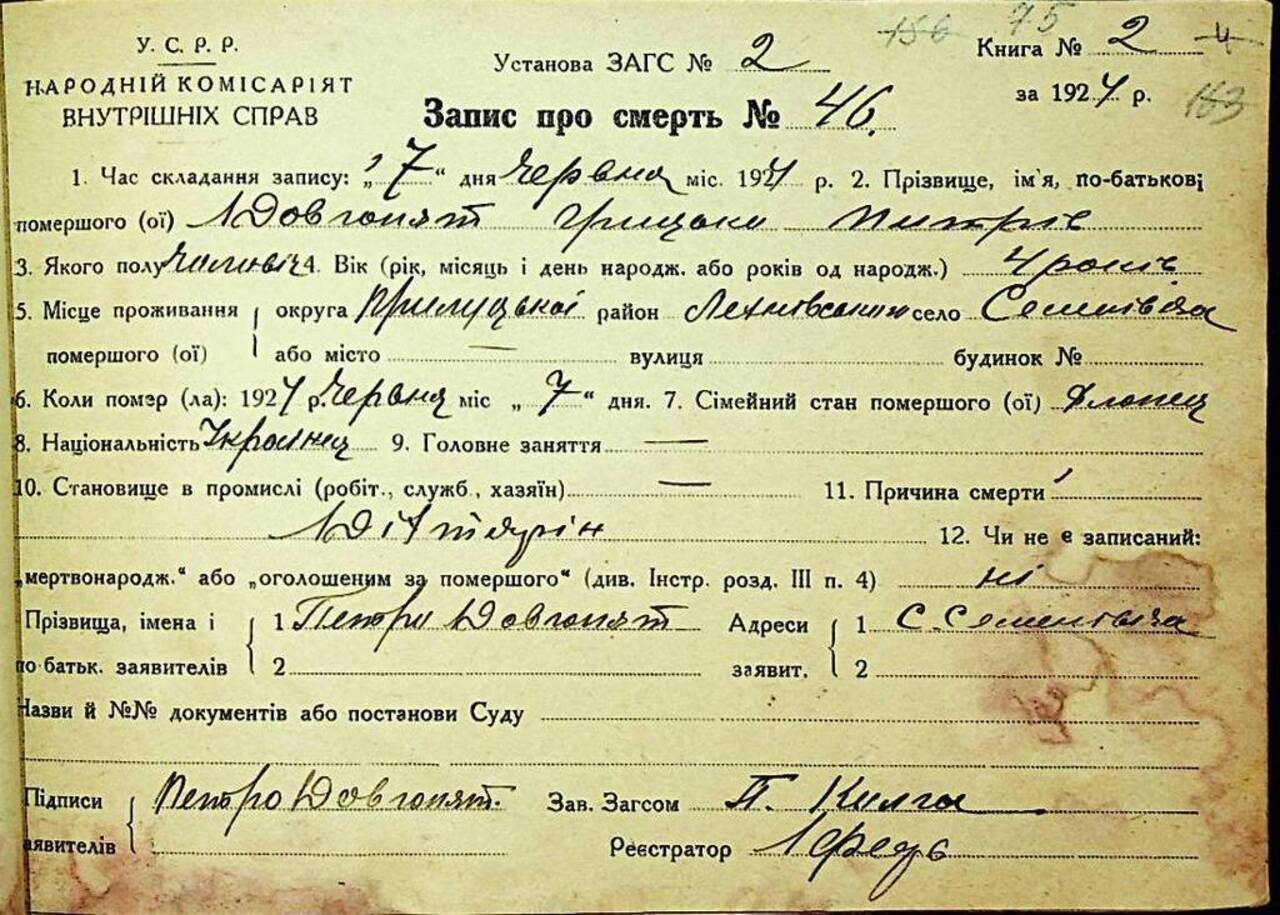 У. С. Р. Р.
НАРОДНІЙ КОМІСАРІЯТ
ВНУТРІШНІХ СПРАВ
Установа ЗАГС № 2
156 75
Книга № 2 4
за 1924 р. 153
Запис про смерть № 46.
1. Час складання запису: „7“ дня Червня міс. 1924 р. 2. Прізвище, ім'я, по-батькові
помершого (ої) Довгопят Грицько Петрів
3. Якого полу Чоловіч 4. Вік (рік, місяць і день народж. або років од народж.) 4 років
5. Місце проживання округа Прилуцької район село Семенівка
помершого (ої) або місто — вулиця будинок №
6. Коли помэр (ла): 1924 р. Червня міс „7“ дня. 7. Сімейний стан помершого (ої) Хлопец
8. Національність Украінец 9. Головне заняття —
10. Становище в промислі (робіт., служб., хазяїн) — 11. Причина смерти
12. Чи не є записаний:
„мертвонародж.“ або „оголошеним за помершого“ (див. Інстр. розд. III п. 4) ні
Прізвища, імена і 1 Петро Довгопят Адреси 1 С. Семенівка
по батьк. заявителів 2 заявит. 2
Назви й №№ документів або постанови Суду
Підписи Петро Довгопят. Зав. Загсом П.
аявителів Реєстратор